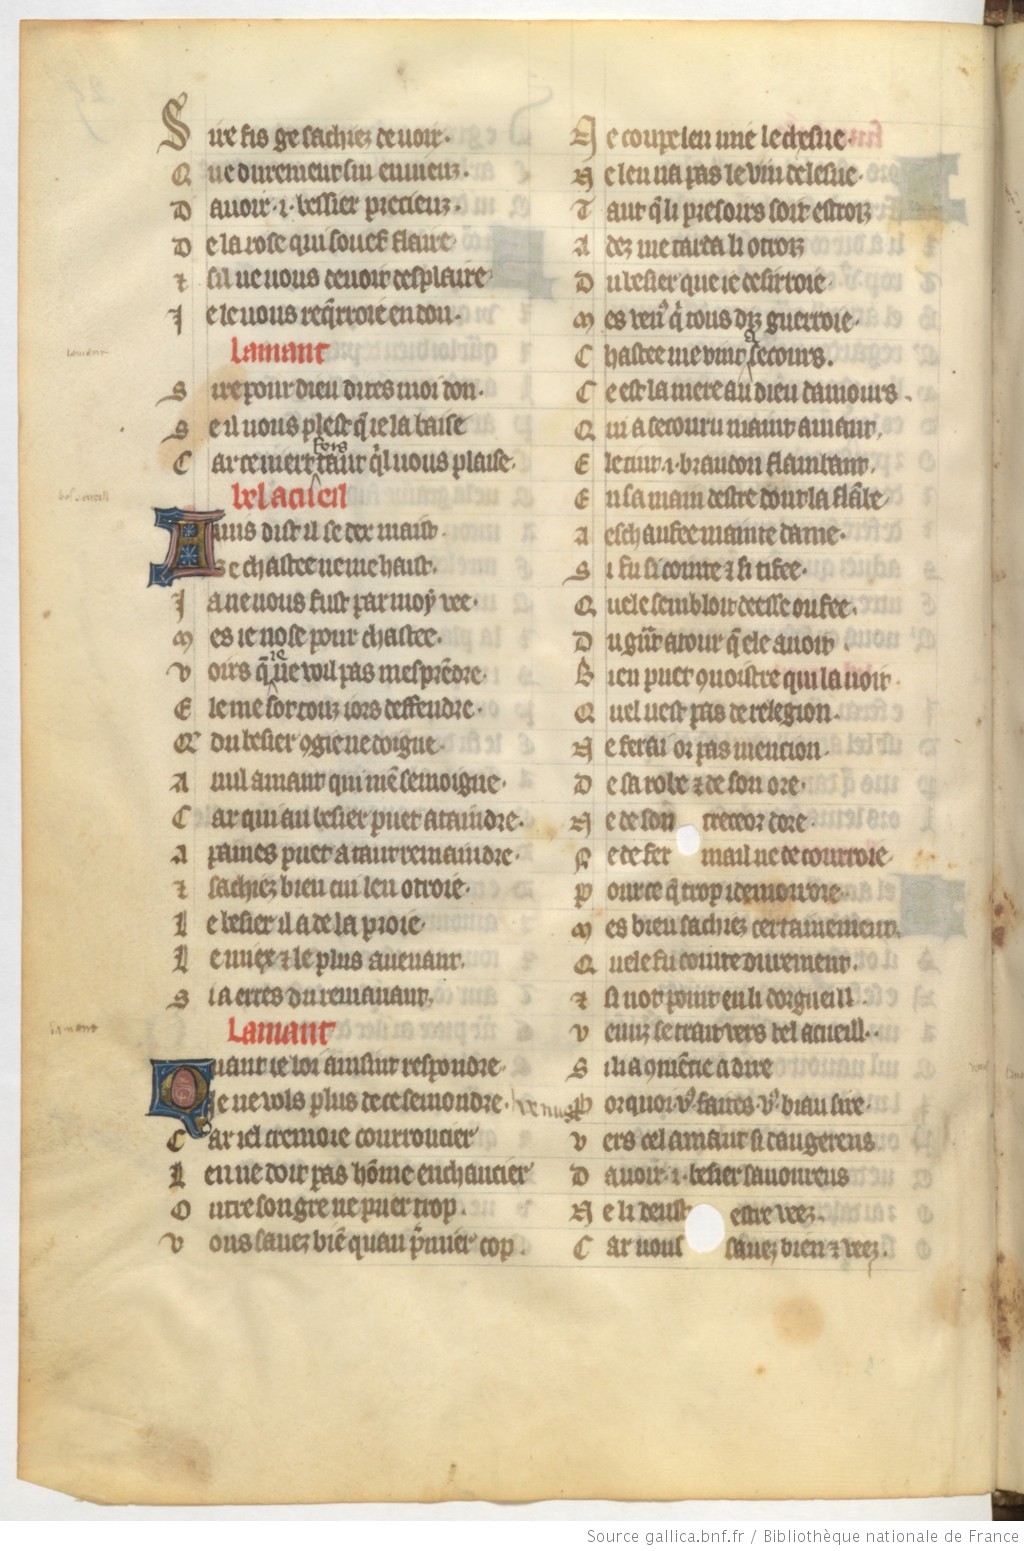 Sire fis ge sachiez de uoir.
Que durement sui enuieus.
Dauoir .i. bessier precieus.
De la rose qui souef flaire
⁊ sil ne uous deuoit desplaire
Je le uous reqͥrroie en don.
Lamant
Sire pour dieu dites moi don.
Se il uous plest q̄ ie la baise
Car ce niert fois tant q̓l uous plaise.
bel acueil
Amis dist il se dex maist
Se chastee ne me haist.
Ja ne uous fust par moy vee.
Mes ie nose pour chastee.
Voirs q̄ ie ne voil pas mesprēdre.
Ele me sot touz iors deffendre.
Q̄ du besier ꝯgie ne doigne
A nul amant qui mē semoigne.
Car qui au besier puet ataindre.
A paines puet a tant remaindre.
⁊ sachiez bien cui len otroie.
Le besier il a de la proie
Le miex ⁊ le plus auenant.
Si a erres du remanant.
Lamant
Quant ie loi ainsint respondre.
Je ne vols plus de ce semondre.
Car iel cremoie courroucier
Len ne doit pas hōme enchaucier
Outre son gre ne puer trop.
Vous sauez biē quau p̄mier cop.
Ne coupe len mie le chesne.
Ne len na pas le vin de lesne.
Tant q̄ li presoirs soit estroiz
Adez me tarda li otroiz
Du besier que ie desirroie.
Mes venˀ q̄ tous dīz guerroie.
Chastee me vint a secours.
Ce est la mere au dieu damours.
Qui a secouru maint amant.
Ele tint .i. brandon flambant.
En sa main destre dont la flāle
A eschaufee mainte dame.
Si fu si cointe ⁊ si tifee.
Quele sembloit deesse ou fee.
Du gͣnt atour q̄ ele auoit
Bien puet ꝯnoistre qui la uoit.
Quel nest pas de relegion.
Ne ferai or pas mencion.
De sa robe ⁊ de son ore.
Ne de son treceor dore.
Ne de fermail ne de courroie.
Pource q̄ trop idemorroie.
Mes bien sachiez certainement.
Quele fu cointe durement.
⁊ si not point en li dorgueill.
Venuz se trait vers bel acueill.
Si li a ꝯmēcie a dire
Venus
Porquoi vˀ faites vˀ biau sire.
Vers cel amant si dangereus
Dauoir .i. besier sauoureus
Ne li deust estre veez.
Car uous sauez bien ⁊ veez.
Source gallica.bnf.fr / Bibliothèque nationale de France